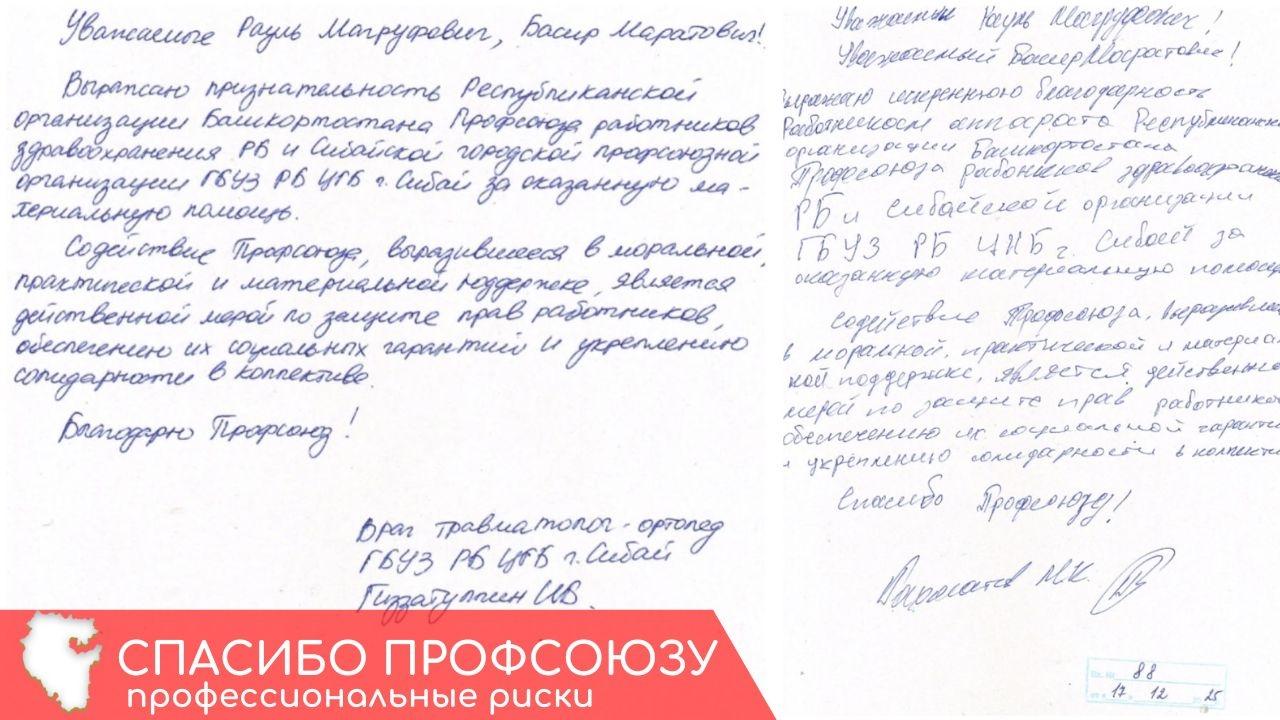 Уважаемые Рауль Магруфович, Басир Маратович!
Выражаю признательность Республиканской
организации Башкортостана Профсоюза работников
здравоохранения РБ и Сибайской городской профсоюзной
организации ГБУЗ РБ ЦГБ г. Сибай за оказанную ма-
териальную помощь.
Содействие Профсоюза, выразившееся в моральной,
практической и материальной поддержке, является
действенной мерой по защите прав работников,
обеспечению их социальных гарантий и укреплению
солидарности в коллективе.
Благодарю Профсоюз!
Врач травматолог-ортопед
ГБУЗ РБ ЦГБ г. Сибай
Гиззатуллин И.В.
Уважаемый Рауль Магруфович!
Уважаемый Басир Маратович!
Выражаю искреннюю благодарность
Работникам аппарата Республиканской
организации Башкортостана
Профсоюза работников здравоохранения
РБ и Сибайской организации
ГБУЗ РБ ЦГБ г. Сибай за
оказанную материальную помощь
Содействие Профсоюза, выразившееся
в моральной, практической и материаль
ной поддержке, является действенной
мерой по защите прав работников
обеспечению их социальной гарантии
и укреплению солидарности в коллективе
Спасибо Профсоюзу!
М.К.
88
17 12 25
СПАСИБО ПРОФСОЮЗУ
профессиональные риски